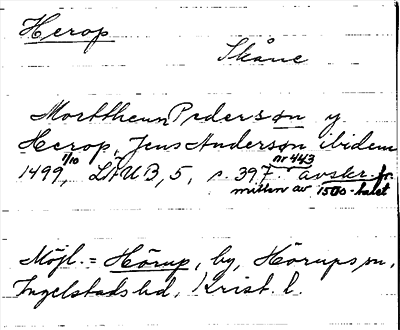 Herop
Skåne
Morttheun Pederson y
Herop, Jens Anderson ibidem
1499, 1/10 LÄUB, 5, s. 397. nr 443 avskr. fr.
mitten av 1500-talet
Möjl. = Hörup, by, Hörups sn,
Ingelstads hd, Krist. l.